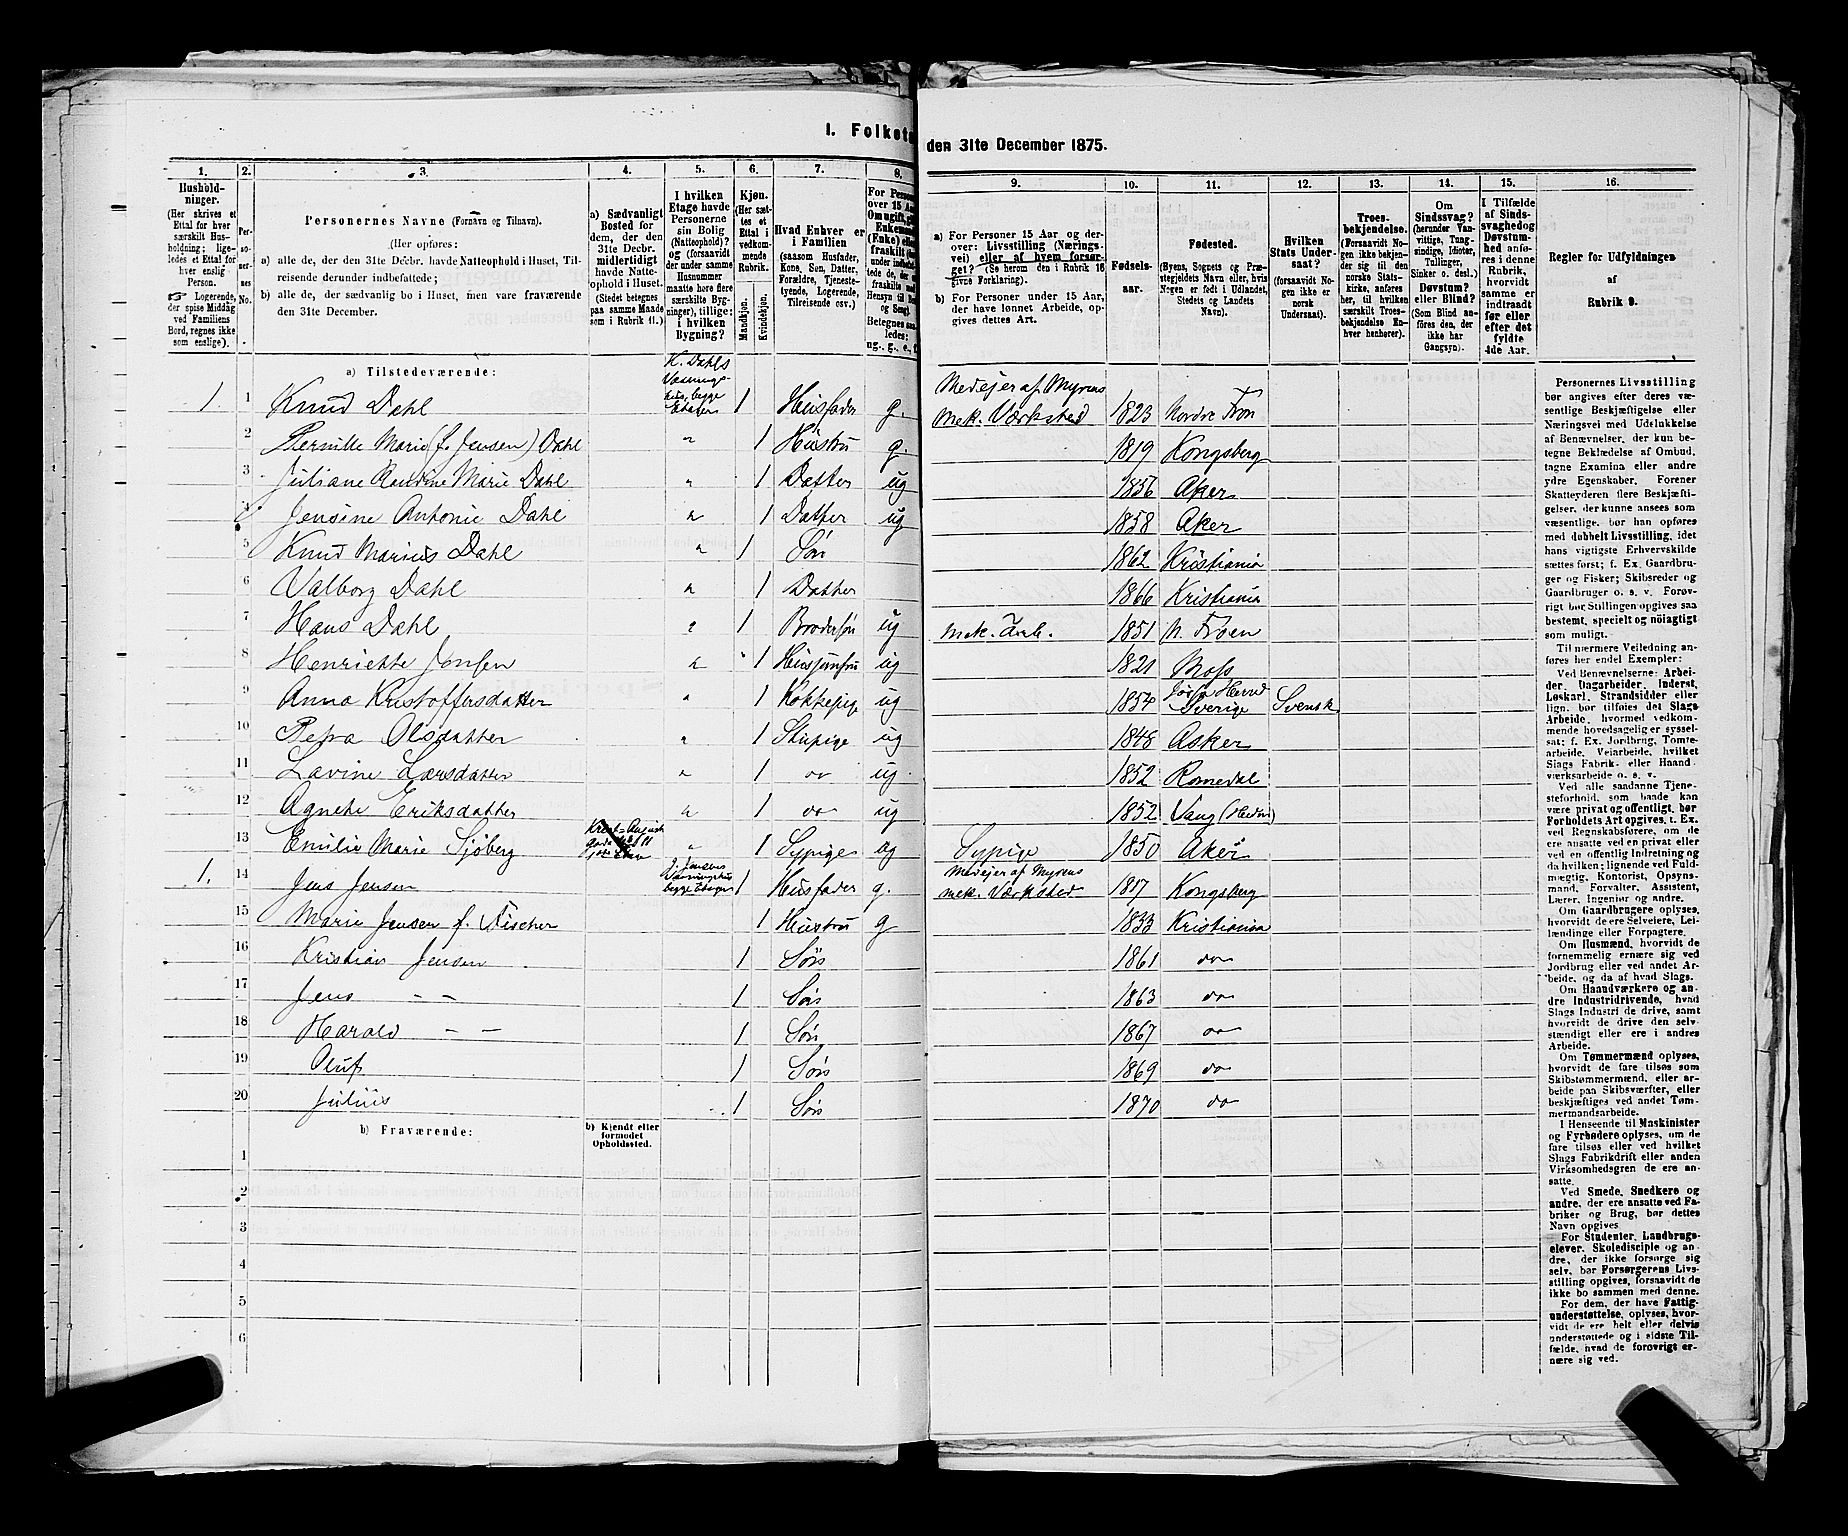 I. Folketæ
den 31te December 1875.
1.
2.
3.
4.
5.
6.
7.
8.
9.
10.
11.
12.
13.
14.
15.
16.
Hushold-
ninger.
(Her skrives et
Ettal for hver
særskilt Hus-
holdning; lige-
ledes et Ettal for
hver enslig
Person.
☞ Logerende,
der spise Middag
ved Familiens
Bord, regnes ikke
som enslige).
Per-
so-
ner-
nes
No.
Personernes Navne (Fornavn og Tilnavn).
(Her opføres:
a) alle de, der den 31te Decbr. havde Natteophold i Huset, Til-
reisende derunder indbefattede;
b) alle de, der sædvanlig bo i Huset, men vare fraværende
den 31te December.
a) Sædvanligt
Bosted for
dem, der den
31te Decbr.
midlertidigt
havde Natte-
ophold i Huset.
(Stedet betegnes
paa samme Maade
som i Rubrik 11.)
I hvilken
Etage havde
Personerne
sin Bolig
(Natteophold)?
og (forsaavidt
der under samme
Husnummer
maatte høre flere
særskilte Byg-
ninger), tillige:
i hvilken
Bygning?
Kjøn.
(Her sæt-
tes et
Ettal i
vedkom-
mende
Rubrik.)
Mandkjøn.
Kvindekjøn.
Hvad Enhver er
i Familien
(saasom Husfader,
Kone, Søn, Datter,
Forældre, Tjeneste-
tyende, Logerende,
Tilreisende osv.)
For Person
over 15 Aar
Om ugift, gi
Enkema
(Enke) elle
fraskilt
a) For Personer 15 Aar og der-
over: Livsstilling (Nærings-
vei) eller af hvem forsør-
get? (Se herom den i Rubrik 16
givne Forklaring).
b) For Personer under 15 Aar,
der have lønnet Arbeide, op-
gives dettes Art.
Fødsels-
aar.
Fødested.
(Byens, Sognets og Præ-
stegjeldets Navn eller, hvis
Nogen er født i Udlandet,
Stedets og Landets
Navn).
Hvilken
Stats Under-
saat?
(forsaavidt No-
gen ikke er
norsk
Undersaat).
Troes-
bekjendelse.
(Forsaavidt No-
gen ikke bekjen-
der sig til den
norske Stats-
kirke, anføres
her, til hvilken
særskilt Troes-
bekjendelse En-
hver henhører).
Om
Sindssvag?
(herunder Van-
vittige, Tung-
sindige, Idioter,
Tullinger,
Sinker o. desl.)
Døvstum?
eller Blind?
(Som Blind an-
føres den, der
ikke har
Gangsyn).
I Tilfælde
af Sinds-
svaghed og
Døvstum-
hed anfø-
res i denne
Rubrik,
hvorvidt
samme er
indtraadt
før eller
efter det
fyldte
4de Aar.
Regler for Udfyldningen
af
Rubrik 9.
a) Tilstedeværende:
H. Dahls
Vaanings-
hus, begge
Etager
1. 1 Knud Dahl 1 Husfader g. Medejer af Myrens mek. Værksted 1823 Nordre Fron
2 Pernille Marie (f. Jensen) Dahl " 1 Hustru g. 1819 Kongsberg
3 Juliane Randine Marie Dahl " 1 Datter ug 1856 Aker
4 Jensine Antonie Dahl " 1 Datter ug 1858 Aker
5 Knud Marius Dahl " 1 Søn 1862 Kristiania
6 Valborg Dahl " 1 Datter 1866 Kristiania
7 Hans Dahl " 1 Brodersøn ug mek. Arb. 1851 N. Froen
8 Henriette Jonsen " 1 Husjomfru ug 1821 Moss
9 Anna Kristoffersdatter " 1 Kokkepige ug 1854 Sverige Svensk
10 Petra Olsdatter " 1 Stupige ug 1848 Asker
11 Lavine Larsdatter " 1 do ug 1852 Romedal
12 Agnete Eriksdatter " 1 do ug 1852 Vang (Hedm)
13 Emilie Marie Sjøberg " 1 Sypige ug Sypige 1850 Aker
J. Jensens
Vaaningshus
begge Etager
1. 14 Jens Jensen 1 Husfader g. Medejer af Myrens mek. Værksted 1817 Kongsberg
15 Marie Jensen f. Fischer 1 Hustru g 1833 Kristiania
16 Kristian Jensen 1 Søn 1861 do
17 Jens — — 1 Søn 1863 do
18 Harald — — 1 Søn 1867 do
19 Oluf 1 Søn 1869 do
20 Julius 1 Søn 1870 do
b) Fraværende:
b) Kjendt eller
formodet
Opholdssted.
1
2
3
4
5
6
Personernes Livsstilling
bør angives efter deres væ-
sentlige Beskjæftigelse eller
Næringsvei med Udelukkelse
af Benævnelser, der kun be-
tegne Beklædelse af Ombud,
tagne Examina eller andre
ydre Egenskaber. Forener
Skatteyderen flere Beskjæfti-
gelser, der kunne ansees som
væsentlige, bør han opføres
med dobbelt Livsstilling, idet
hans vigtigste Erhvervskilde
sættes først; f. Ex. Gaardbru-
ger og Fisker; Skibsreder og
Gaardbruger o. s. v. Forøv-
rigt bør Stillingen opgives saa
bestemt, specielt og nøiagtigt
som muligt.
Til nærmere Veiledning an-
føres her endel Exempler:
Ved Benævnelserne: Arbei-
der, Dagarbeider, Inderst,
Løskarl, Strandsidder eller
lign. bør tilføies det Slags
Arbeide, hvormed vedkom-
mende hovedsagelig er syssel-
sat; f. Ex. Jordbrug, Tomte-
arbeide, Veiarbeide, hvilket
Slags Fabrik- eller Haand-
værksarbeide o. s. v.
Ved alle saadanne Tjene-
steforhold, som baade kan
være privat og offentligt, bør
Forholdets Art opgives, t. Ex.
ved Regnskabsførere, om de
ere ansatte ved en privat eller
ved en offentlig Indretning og
da hvilken; lignende ved Fuld-
mægtig, Kontorist, Opsyns-
mand, Forvalter, Assistent,
Lærer, Ingeniør og andre.
Om Gaardbrugere oplyses,
hvorvidt de ere Selveiere, Lei-
lændinge eller Forpagtere.
Om Husmænd, hvorvidt de
fornemmelig ernære sig ved
Jordbrug eller ved andet Ar-
beide, og da af hvad Slags.
Om Haandværkere og an-
dre Industridrivende, hvad
Slags Industri de drive, samt
hvorvidt de drive den selv-
stændigt eller ere i andres
Arbeide.
Om Tømmermænd oplyses,
hvorvidt de fare tilsøs som
Skibstømmermænd, eller ar-
beide paa Skibsværfter, eller
beskjæftiges ved andet Tøm-
mermandsarbeide.
I Henseende til Maskinister
og Fyrbødere oplyses, om de
fare tilsøs eller ved hvilket
Slags Fabrikdrift eller anden
Virksomhedsgren de ere an-
satte.
Ved Smede, Snedkere og
andre, der ere ansatte ved Fa-
briker og Brug, bør dettes
Navn opgives.
For Studenter, Landbrugs-
elever, Skoledisciple og an-
dre, der ikke forsørge sig
selv, bør Forsørgerens Livs-
stilling opgives, forsaavidt de
ikke bo sammen med denne.
For dem, der have Fattig-
understøttelse, oplyses, hvor-
vidt de ere helt eller delvis
understøttede og i sidste Til-
fælde, hvad de forøvrigt er-
nære sig ved.